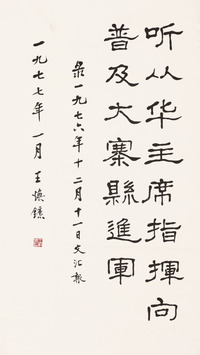 听从华主席指揮向
普及大寨縣進軍
录一九七六年十二月十一日文汇报
一九七七年一月王懷鐿